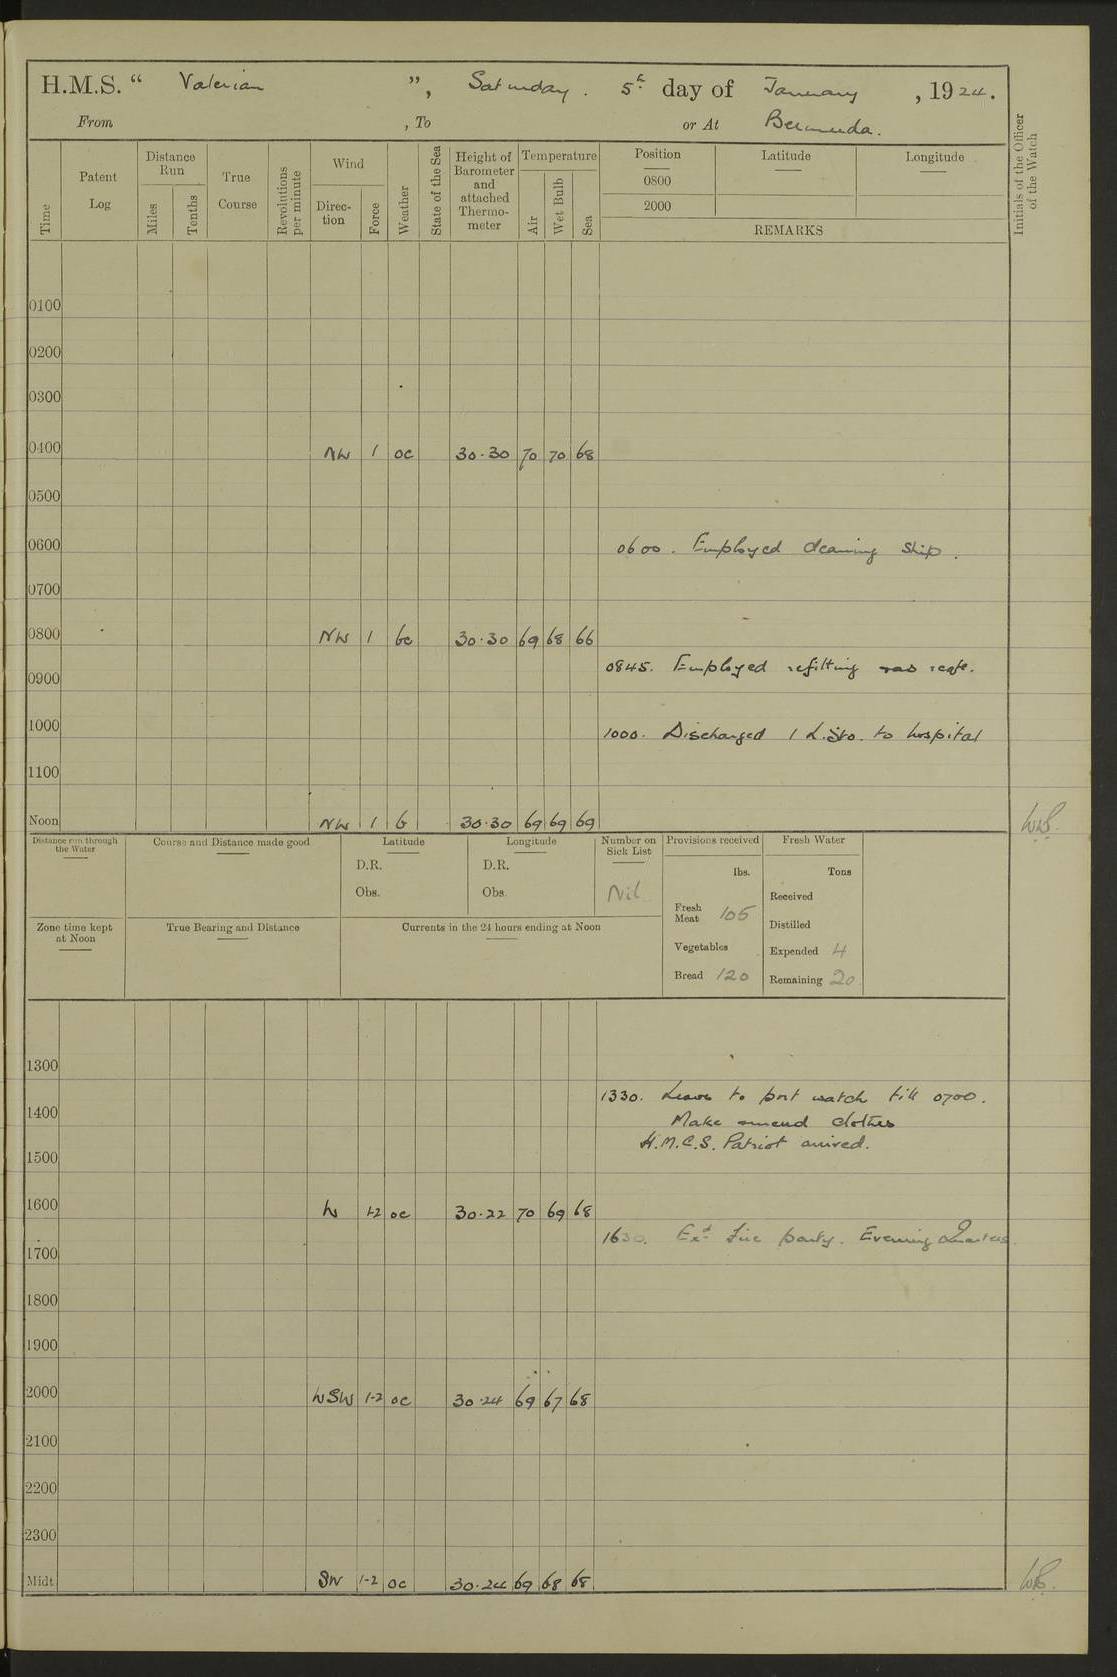 H.M.S. “ Valerian ”, Saturday. 5th day of January, 1924.
From , To or At Bermuda.
Time Patent Log Distance Run Miles Tenths True Course Revolutions per minute Wind Direc-tion Force Weather State of the Sea Height of Barometer and attached Thermo-meter Temperature Air Wet Bulb Sea Position Latitude Longitude Initials of the Officer of the Watch
0800
2000
REMARKS
0100
0200
0300
0400 NW 1 oc 30.30 70 70 68
0500
0600 0600. Employed cleaning ship.
0700
0800 NW 1 bc 30.30 69 68 66
0845. Employed refitting
0900
1000 1000. Discharged 1 L.Sto. to hospital
1100
Noon NW 1 b 30.30 69 69 69
Distance run through the Water Course and Distance made good Latitude Longitude Number on Sick List Provisions received Fresh Water
D.R. D.R. lbs. Tons
Obs. Obs. Nil Received
Fresh Meat 105
Distilled
Zone time kept at Noon True Bearing and Distance Currents in the 24 hours ending at Noon
Vegetables Expended 4
Bread 120 Remaining 20
1300
1330. Leave to port watch till 0700.
1400 Make & mend clothes
H.M.C.S. Patriot arrived.
1500
1600 W 1-2 oc 30.22 70 69 68
1630. Exd fire party. Evening Quarters.
1700
1800
1900
2000 WSW 1-2 oc 30.24 69 67 68
2100
2200
2300
Midt. SW 1-2 oc 30.24 69 68 68